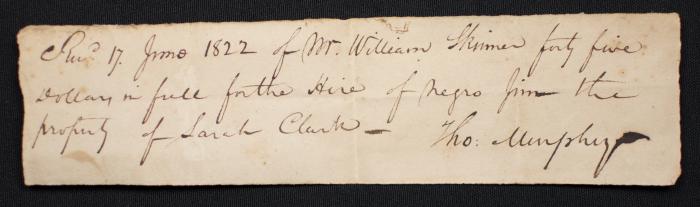 Recd 17. June 1822 of Mr. William Skinner forty five
Dollars in full for the Hire of Negro Jim the
property of Sarah Clark —
Tho: Murphey